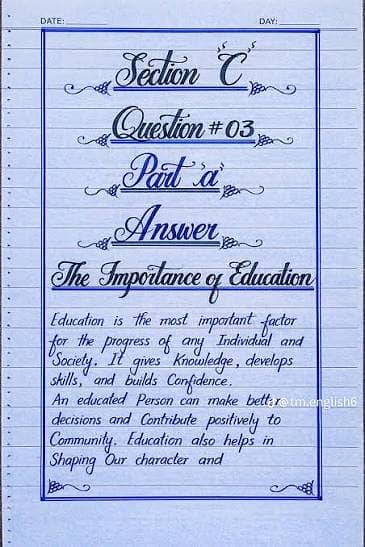 DATE: ________ DAY: ________
Section "C"
Question # 03
Part 'a'
Answer
The Importance of Education
Education is the most important factor
for the progress of any Individual and
Society. It gives Knowledge, develops
skills, and builds Confidence.
An educated Person can make better
decisions and Contribute positively to
Community. Education also helps in
Shaping Our character and
@tm.english6